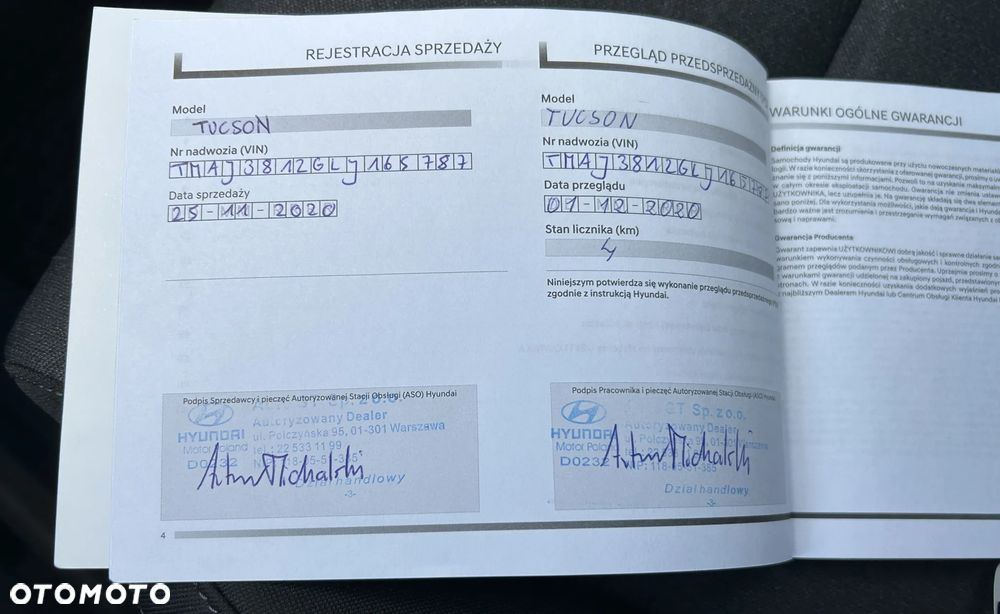 REJESTRACJA SPRZEDAŻY
Model
TUCSON
Nr nadwozia (VIN)
TMAJ3812GLJ165787
Data sprzedaży
25-11-2020
Podpis Sprzedawcy i pieczęć Autoryzowanej Stacji Obsługi (ASO) Hyundai
Sp. z o.o.
Autoryzowany Dealer
HYUNDAI ul. Połczyńska 95, 01-301 Warszawa
Motor Poland tel.: 22 533 11 99
D0232
Artur Michalski
Dział handlowy
-3-
4
PRZEGLĄD PRZEDSPRZEDAŻNY
Model
TUCSON
Nr nadwozia (VIN)
TMAJ3812GLJ16578
Data przeglądu
01-12-2020
Stan licznika (km)
4
Niniejszym potwierdza się wykonanie przeglądu przedsprzedażnego
zgodnie z instrukcją Hyundai.
Podpis Pracownika i pieczęć Autoryzowanej Stacji Obsługi (ASO) Hyundai
GT Sp. z o.o.
Autoryzowany Dealer
HYUNDAI
Motor Poland
D0232
Artur Michalski
Dział handlowy
-3-
WARUNKI OGÓLNE GWARANCJI
Definicja gwarancji
Samochody Hyundai są produkowane przy użyciu nowoczesnych
logii. W razie konieczności skorzystania z oferowanej gwarancji, prosimy o
znanie się z poniższymi informacjami. Pozwoli to na uzyskanie
w całym okresie eksploatacji samochodu. Gwarancja nie zmienia
UŻYTKOWNIKA, lecz uzupełnia je. Na gwarancję składają się dwa
sano poniżej. Dla wykorzystania możliwości, jakie dają gwarancja i Hyundai
bardzo ważne jest zrozumienie i przestrzeganie wymagań związanych z
sową i naprawami.
Gwarancja Producenta
Gwarant zapewnia UŻYTKOWNIKOWI dobrą jakość i sprawne działanie
warunkiem wykonywania czynności obsługowych i kontrolnych
gramem przeglądów podanym przez Producenta. Uprzejmie prosimy o
z warunkami gwarancji udzielonej na zakupiony pojazd,
stronach. W razie konieczności uzyskania dodatkowych wyjaśnień
z najbliższym Dealerem Hyundai lub Centrum Obsługi Klienta Hyundai
OTOMOTO